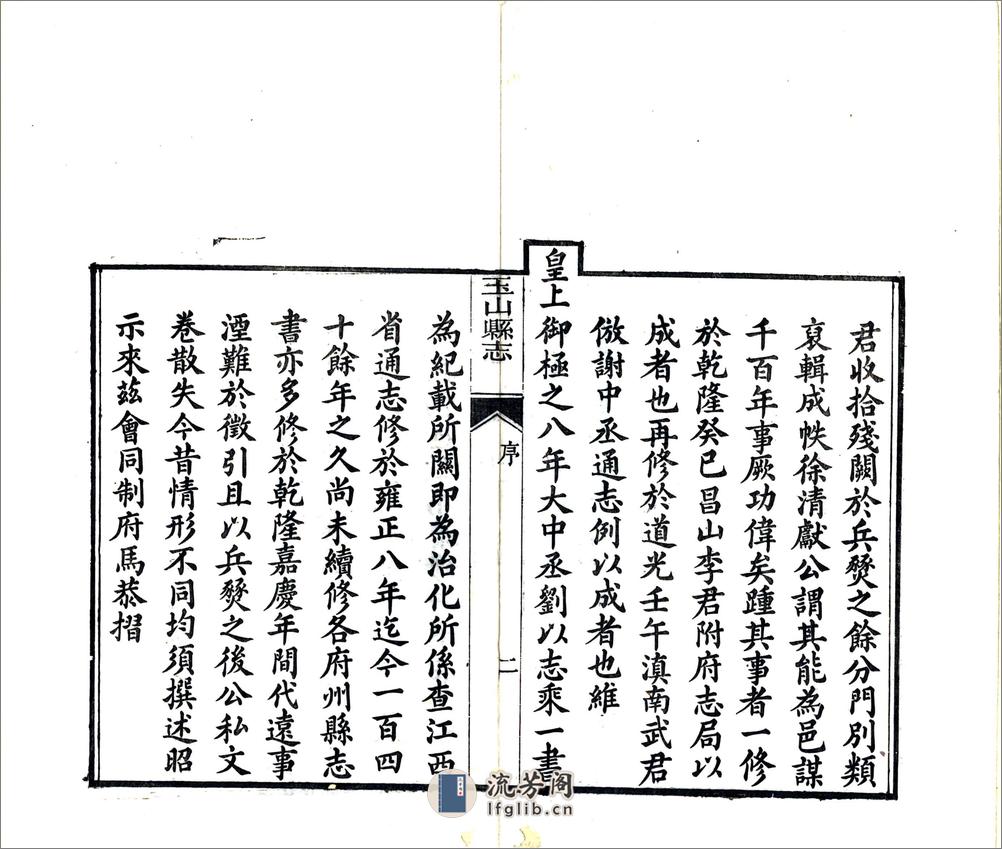 君收拾殘闕於兵燹之餘分門別類
裒輯成帙徐清獻公謂其能為邑謀
千百年事厥功偉矣踵其事者一修
於乾隆癸巳昌山李君附府志局以
成者也再修於道光壬午滇南武君
倣謝中丞通志例以成者也維
皇上御極之八年大中丞劉以志乘一書
玉山縣志
序
二
為紀載所關即為治化所係查江西
省通志修於雍正八年迄今一百四
十餘年之久尚未續修各府州縣志
書亦多修於乾隆嘉慶年間代遠事
湮難於徵引且以兵燹之後公私文
卷散失今昔情形不同均須撰述昭
示來茲會同制府馬恭摺
流芳阁
lfglib.cn